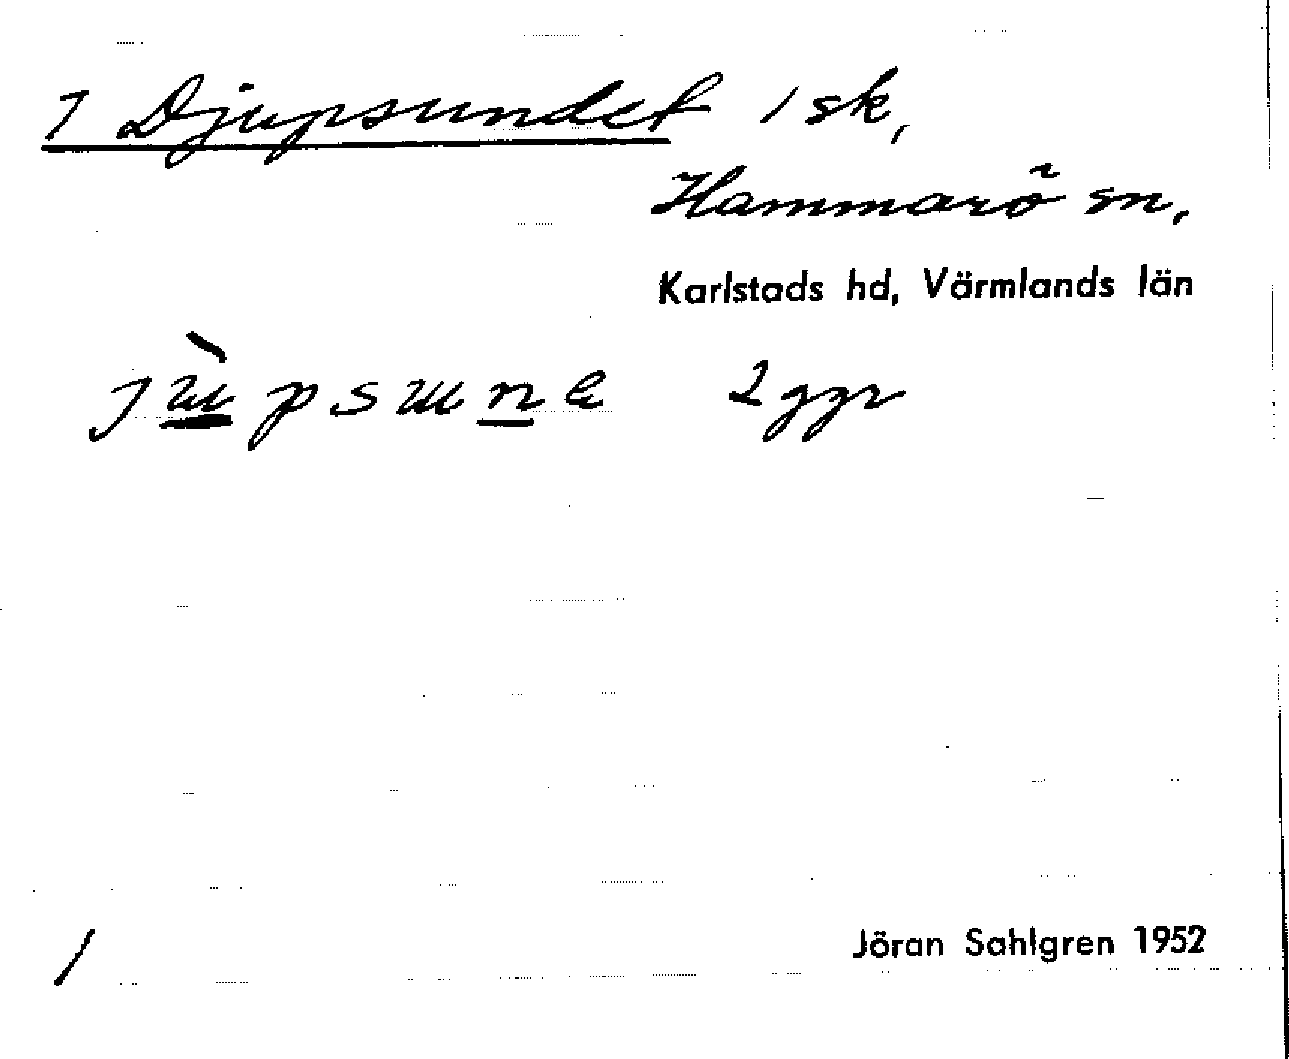 1 Djupsundet 1 sk,
Hammarö sn,
Karlstads hd, Värmlands län
jùpsune 2 ggr
Jöran Sahlgren 1952
1